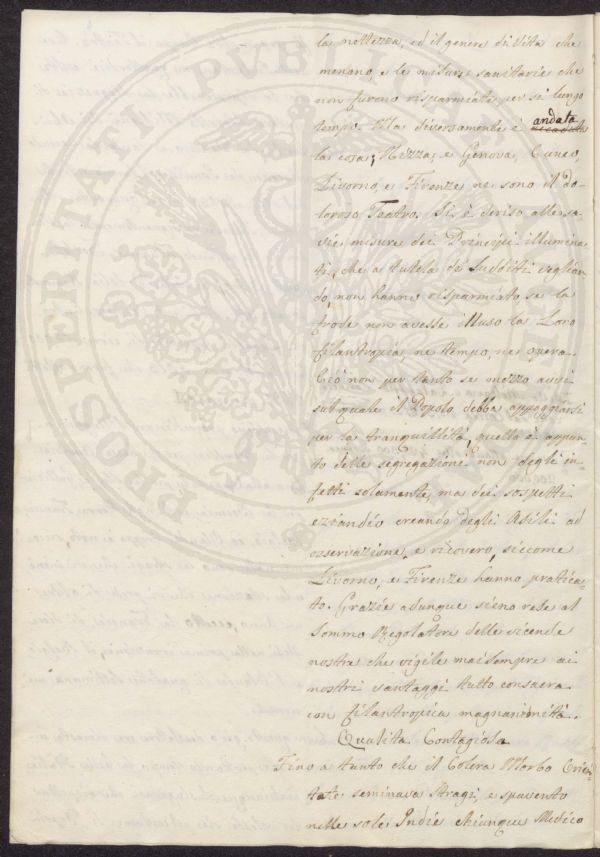 la nettezza, ed il genere di Vitta che
menano, e le misure sanitarie che
non furono risparmiate per si lungo
tempo. Ma diversamente è andata
la cosa; Nizza, e Genova, Cuneo,
Livorno, e Firenze ne sono il do-
loroso Teatro. Si è deriso alle sa-
vie misure dei Principi illumina-
ti, che a tutela de' Sudditi veglian-
do, non hanno risparmiato, se la
frode non avesse illuso la Loro
filantropia, ne tempo, ne opera.
Ciò non per tanto se mezzo avvi
sul quale il Popolo debba appoggiarsi
per la tranquillità, quello è appun-
to delle segregazioni non degli in-
fetti solamente, ma dei sospetti
eziandio creando degli Asili ad
osservazione, e ricovero, siccome
Livorno, e Firenze hanno pratica-
to. Grazie adunque siena rese al
Sommo Regolatore delle vicende
nostre che vigile mai sempre ai
nostri vantaggi tutto consacra
con filantropica magnanimità.
Qualita Contagiosa
Fino a tanto che il Colera Morbo Orien-
tale seminava Stragi, e spavento
nelle sole Indie chiunque Medico
PROSPERITATI PUBLICAE